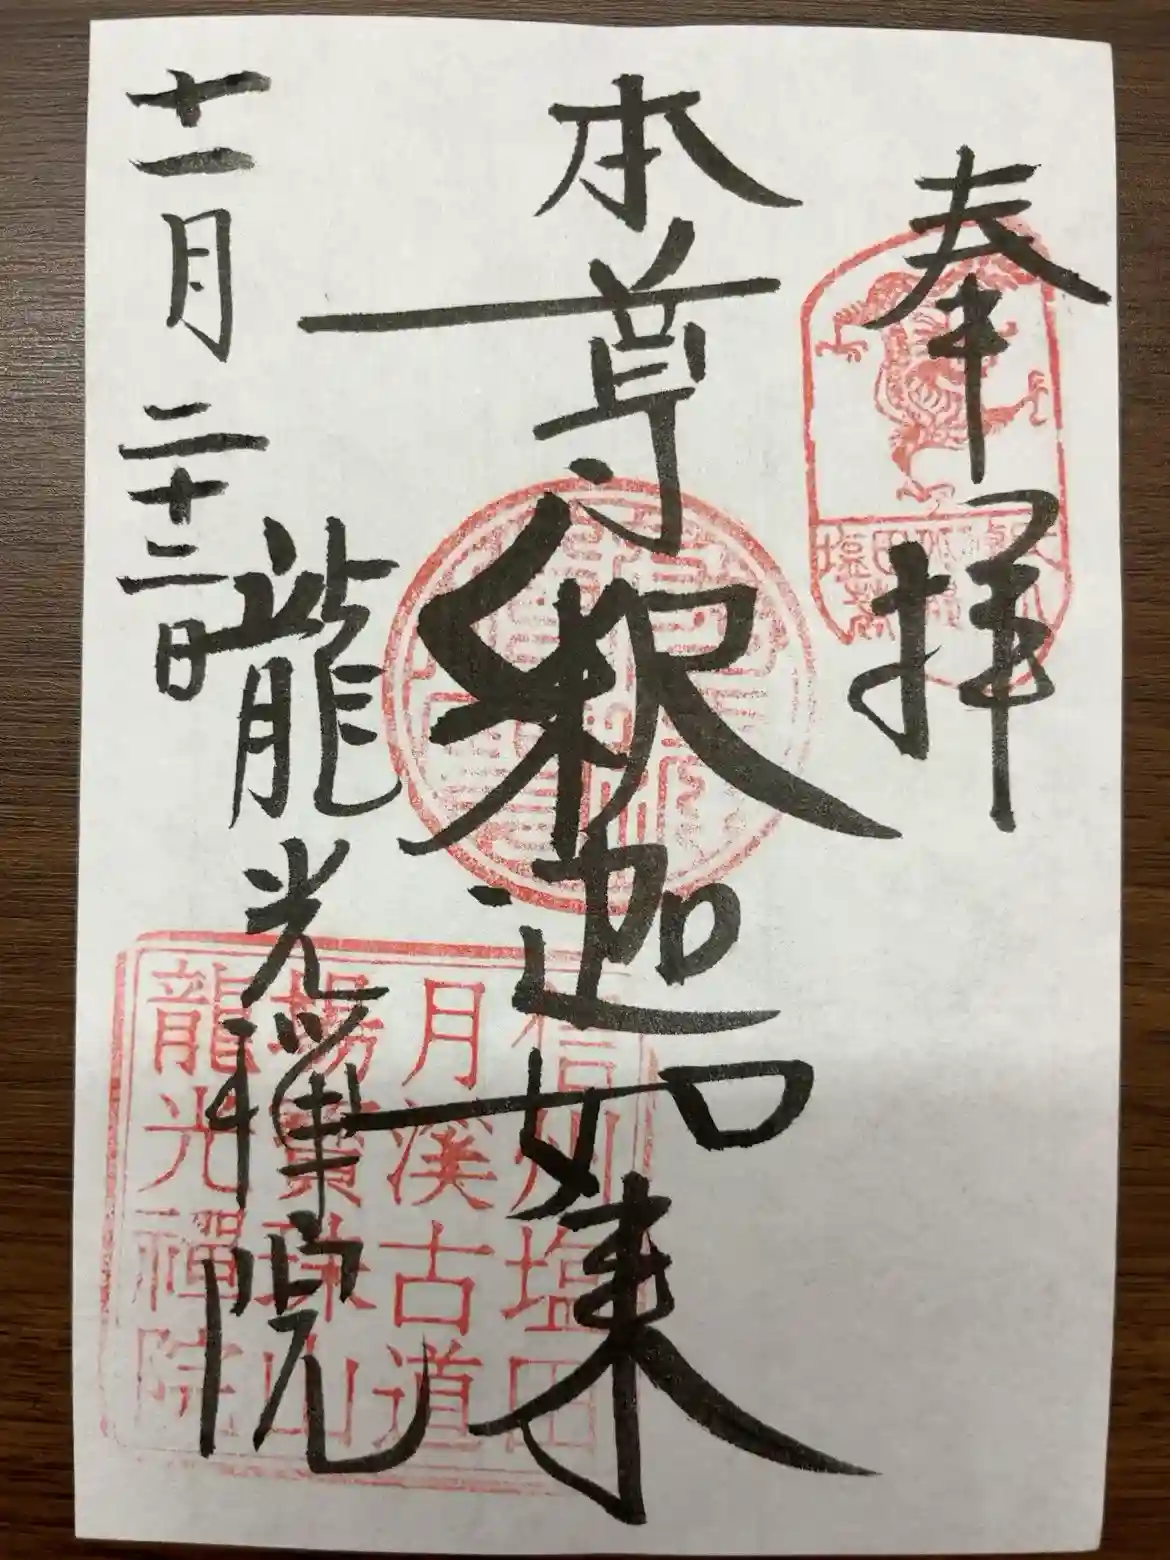 奉拝
本尊釈迦如来
龍光禅院
十一月二十二日
信州塩田
月溪古道
場寶珠山
龍光禪院